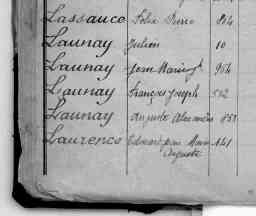 Lassauce Félix Pierre 814
Launay Julien 10
Launay Jean Marie 954
Launay François Joseph 512
Launay Auguste Alexandre 851
Laurence Edouard Jean Marie 141
Auguste